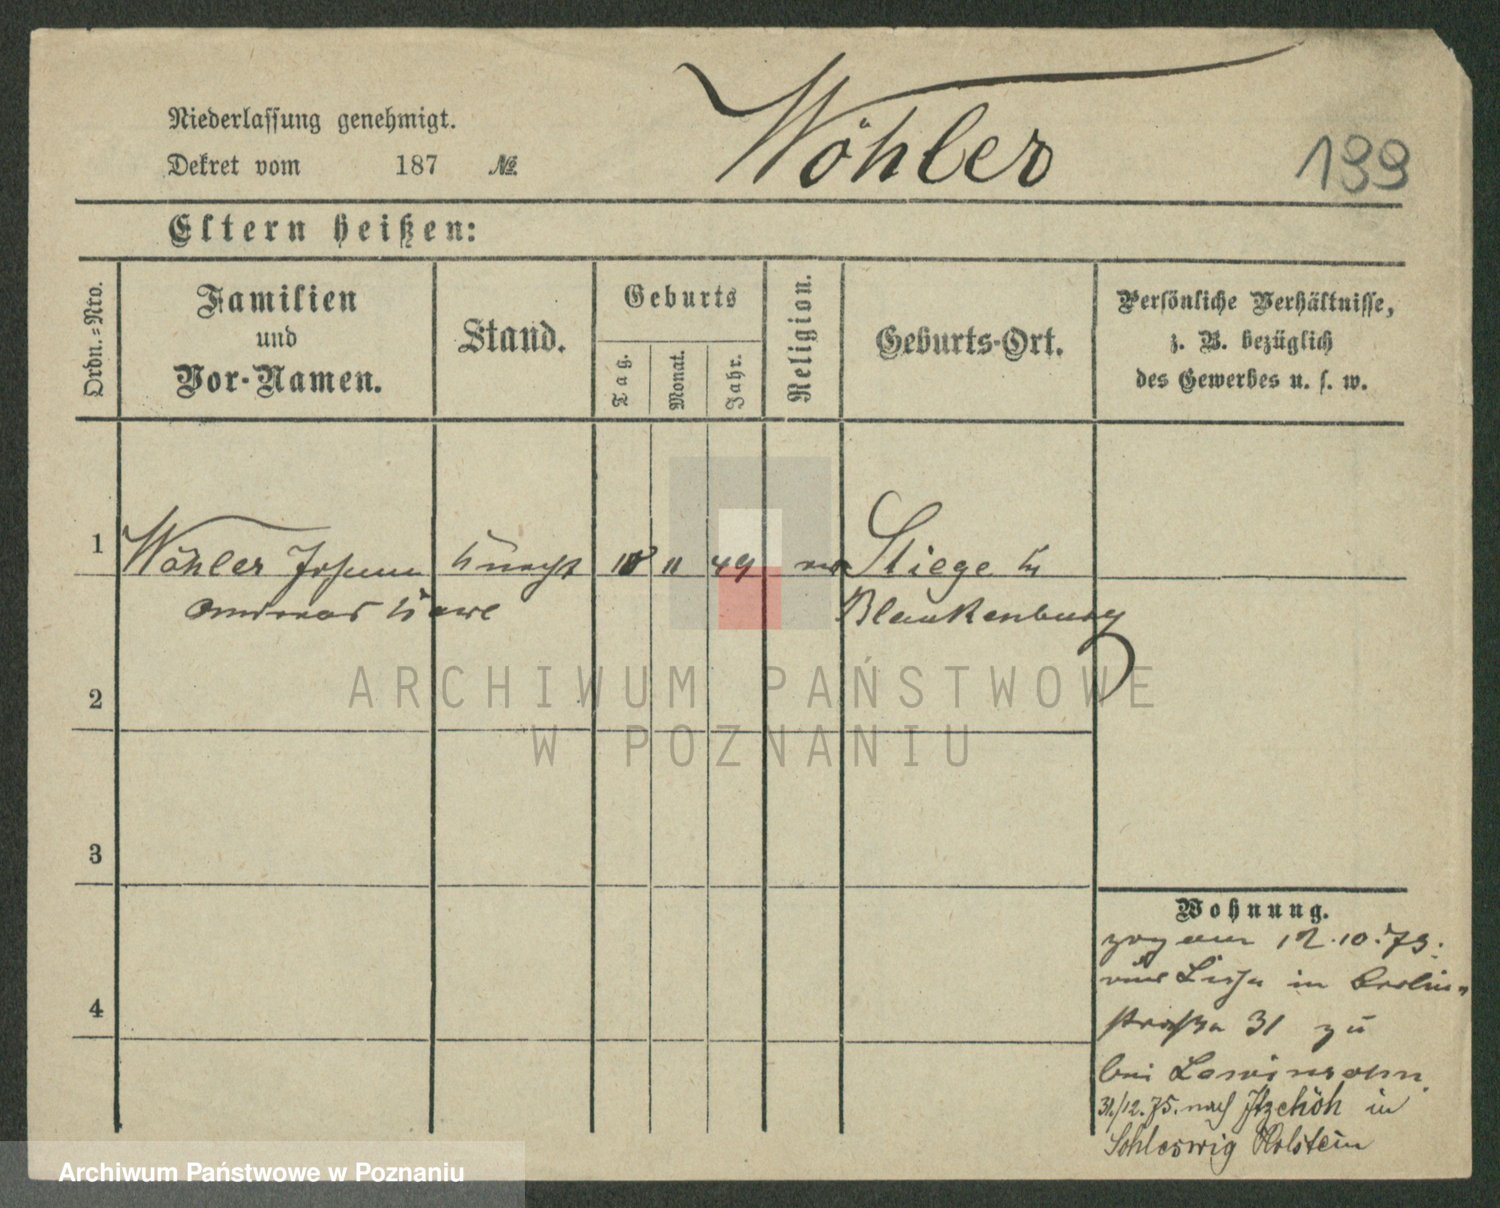 Niederlassung genehmigt.
Dekret vom 187 №
Wöhler
199
Eltern heißen:
Ordn.-Nro.
Familien
und
Vor-Namen.
Stand.
Geburts
Tag.
Monat.
Jahr.
Religion.
Geburts-Ort.
Persönliche Verhältnisse,
z. B. bezüglich
des Gewerbes u. s. w.
1
Wöhler Johann Knecht 11 49 Stiege
Andreas Karl Blankenburg
2
3
4
Wohnung.
zog am 12.10.73.
aus Lissa in Berlin-
straße 31 zu
bei Lewinsohn.
31./12.75. nach Itzehöh in
Schleswig Holstein
ARCHIWUM PAŃSTWOWE
W POZNANIU
Archiwum Państwowe w Poznaniu